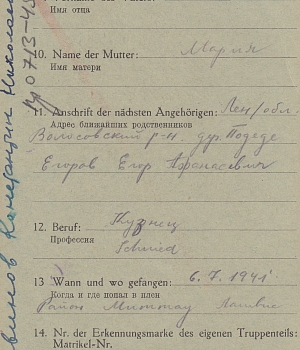 Имя отца
10. Name der Mutter: Мария
Имя матери
11. Anschrift der nächsten Angehörigen: Лен/обл.
Адрес ближайших родственников
Волосовский р-н дер.
Егоров Егор Афанасьевич
12. Beruf: Кузнец
Профессия
Schmied
13 Wann und wo gefangen: 6.7.1941
Когда и где попал в плен
Район
14. Nr. der Erkennungsmarke des eigenen Truppenteils:
Matrikel-Nr.
Константин Николаев